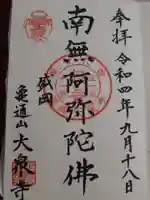 奉拝 令和四年九月十八日
南無阿弥陀佛
盛岡
亀通山 大泉寺